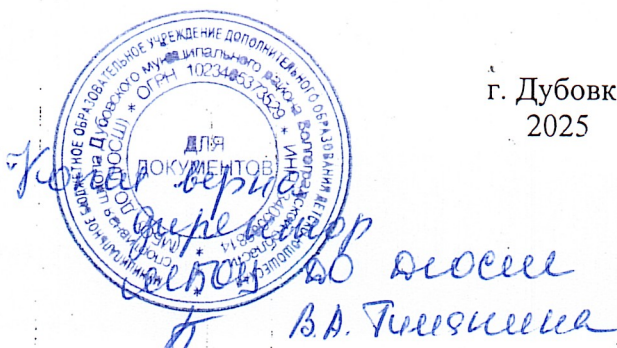 г. Дубовк
2025
МУНИЦИПАЛЬНОЕ БЮДЖЕТНОЕ ОБРАЗОВАТЕЛЬНОЕ УЧРЕЖДЕНИЕ ДОПОЛНИТЕЛЬНОГО ОБРАЗОВАНИЯ ДЕТСКО-ЮНОШЕСКАЯ
спортивная школа Дубовского муниципального района Волгоградской области
ОГРН 1023405373529 * ИНН
ДЛЯ
ДОКУМЕНТОВ
Копия верна
директор
МБОУ ДО ДЮСШ
В.А.